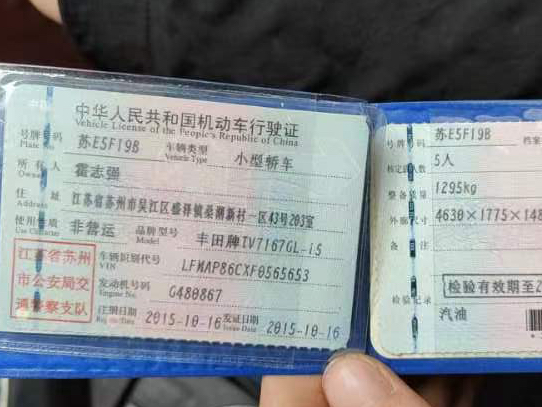 中华人民共和国机动车行驶证
Vehicle License of the People's Republic of China
号牌号码 苏E5F19B 车辆类型 小型轿车
Plate No. Vehicle Type
所有人 霍志强
Owner
住址 江苏省苏州市吴江区盛泽镇桑湖新村一区43号203室
Address
使用性质 非营运 品牌型号 丰田牌TV7167GL-i5
Use Character Model
江苏省苏州
市公安局交
通警察支队
车辆识别代号 LFMAP86CXF0565653
VIN
发动机号码 G480867
Engine No.
注册日期 2015-10-16 发证日期 2015-10-16
Register Date Issue Date
号牌号码 苏E5F19B 档案
核定载人数 5人
整备质量 1295kg
外廓尺寸 4630×1775×148
备注
检验有效期至2
检验记录
汽油